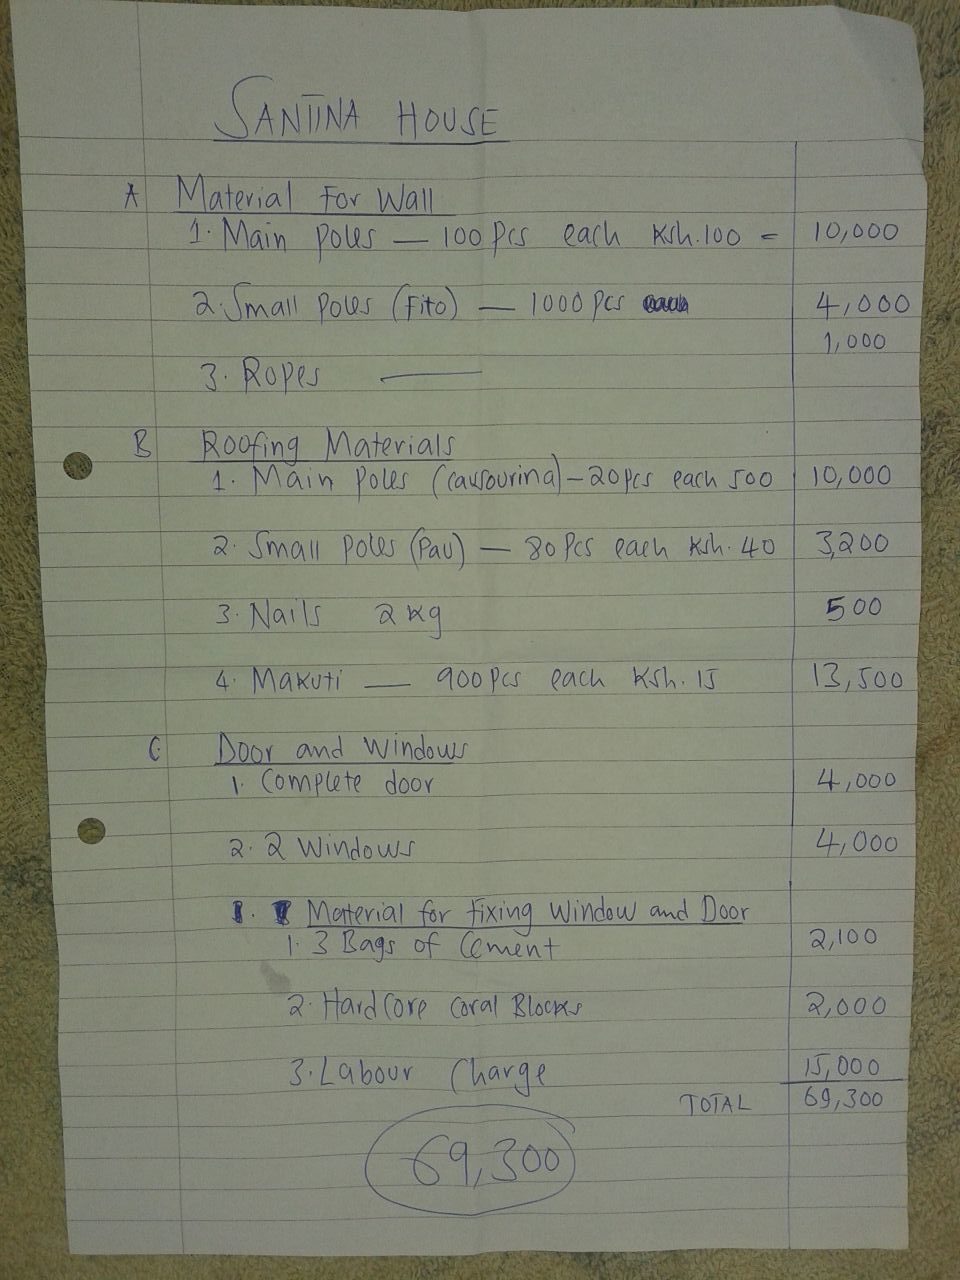 SANTINA HOUSE
A Material For Wall
1. Main Poles — 100 Pcs each Ksh.100 = 10,000
2. Small Poles (Fito) — 1000 Pcs 4,000
1,000
3. Ropes —
B Roofing Materials
1. Main Poles (Causourina) – 20 pcs each 500 10,000
2. Small Poles (Pau) — 80 Pcs each Ksh. 40 3,200
3. Nails 2 kg 500
4. Makuti — 900 Pcs each Ksh. 15 13,500
C Door and Windows
1. Complete door 4,000
2. 2 Windows 4,000
Material for fixing Window and Door
1. 3 Bags of Cement 2,100
2. HardCore Coral Blocks 2,000
3. Labour Charge 15,000
TOTAL 69,300
69,300